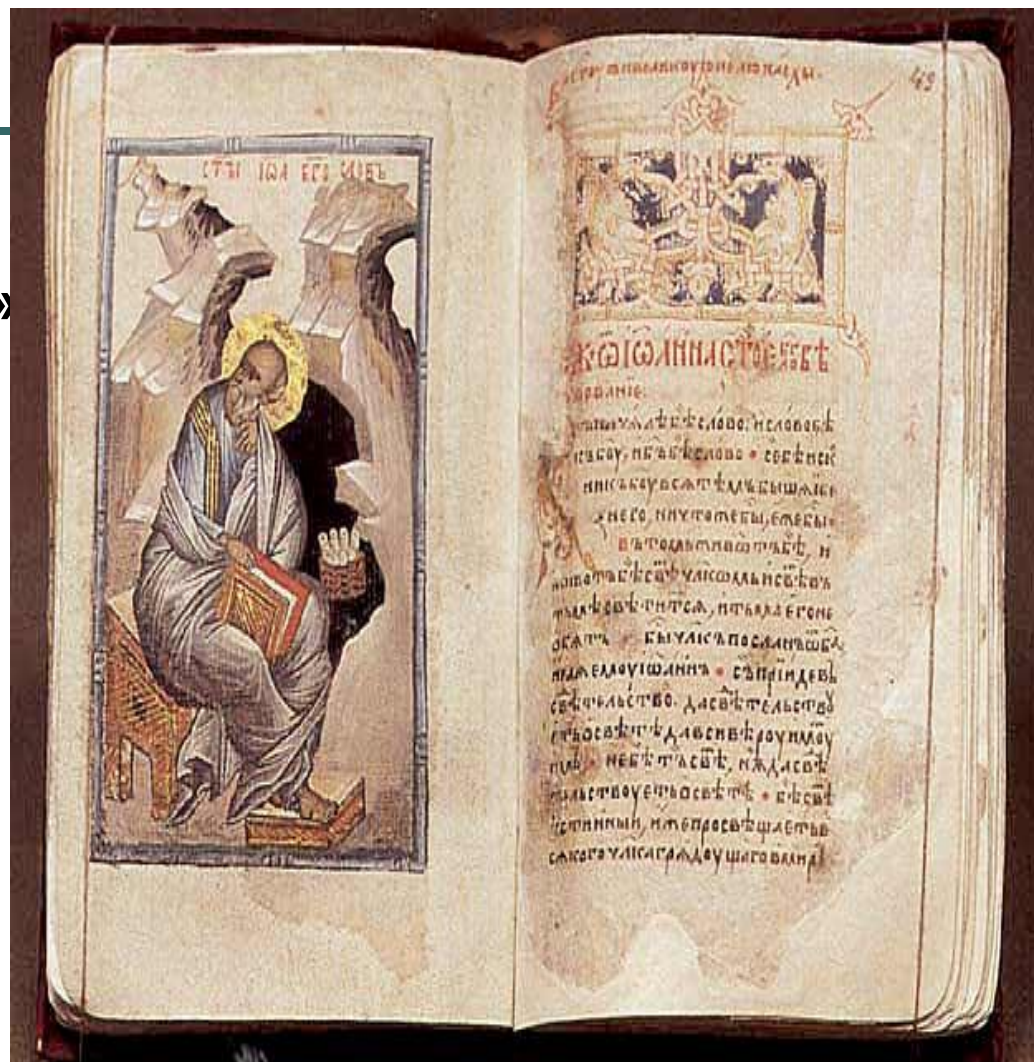 »
СТЪI IѠА БГО СЛОВЪ
49
Ѿ IѠАННА СТОЕ
ваниє.
бѣ слово. и слово бѣ
къ бѹ, и бъ бѣ слово • се бѣ иск
ни къ бѹ вся тѣмь бышѧ и бе
него, ничтоже бы, еже бы•
въ томь живѡтъ бѣ, и
животъ бѣ свѣ члкѡмь и свѣ въ
тьмѣ свѣтитсѧ, и тьма его не
обѧтъ бы члкъ посланъ ѿ ба
имѧ емоу іѡаннъ • съ прїиде въ
свѣтельство. да свѣтельствоу
етъ ѡ свѣтѣ да вси вѣроу имоу
имь • не бѣ тъ свѣ, нѫ да свѣ
тельствоуетъ ѡ свѣтѣ • бѣ свѣ
истинный, иже просвѣщаетъ в
сѧкого члка грѧдоущаго въ мир